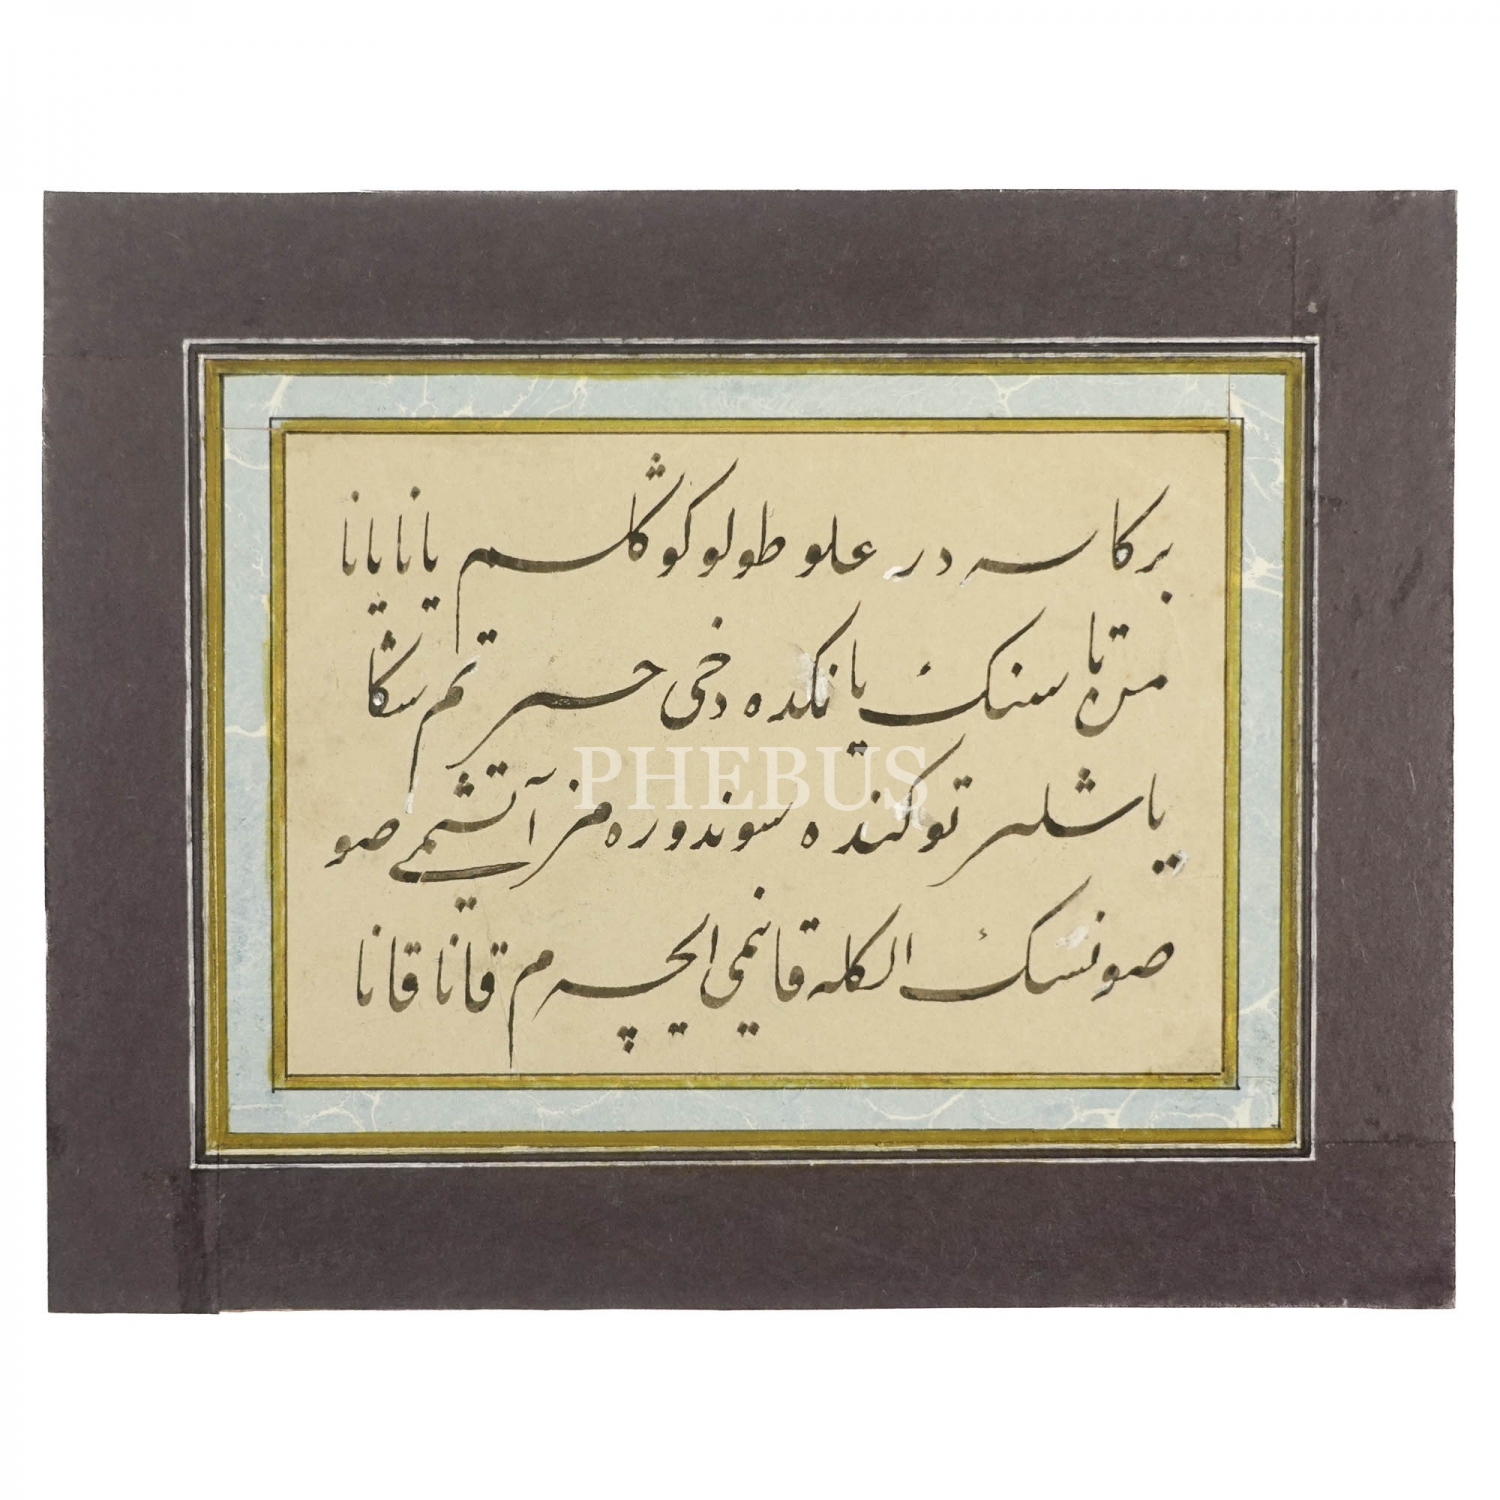 بر كاسه در علو طولو كوڭلم يانا يانا
سنك يانكده دخى حسرتم سڭا
ياشلر توكنده سوندوره مز آتشمى صو
صونسك الكله قانيمى ايچرم قانا قانا
PHEBUS